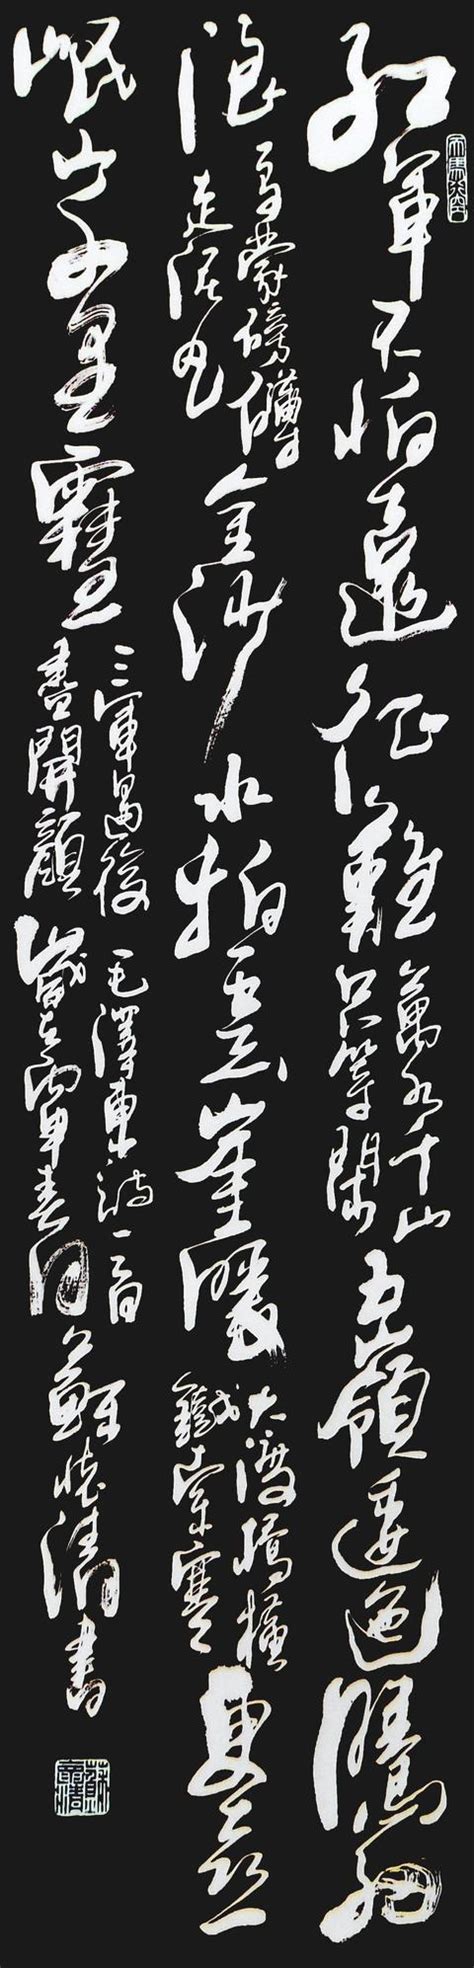 紅軍不怕遠征難萬水千山只等閑五嶺逶迤騰細
浪烏蒙磅礴走泥丸金沙水拍雲崖暖大渡橋橫鐵索寒更喜
岷山千里雪三軍過後盡開顏毛澤東詩一首歲在春蘇清書